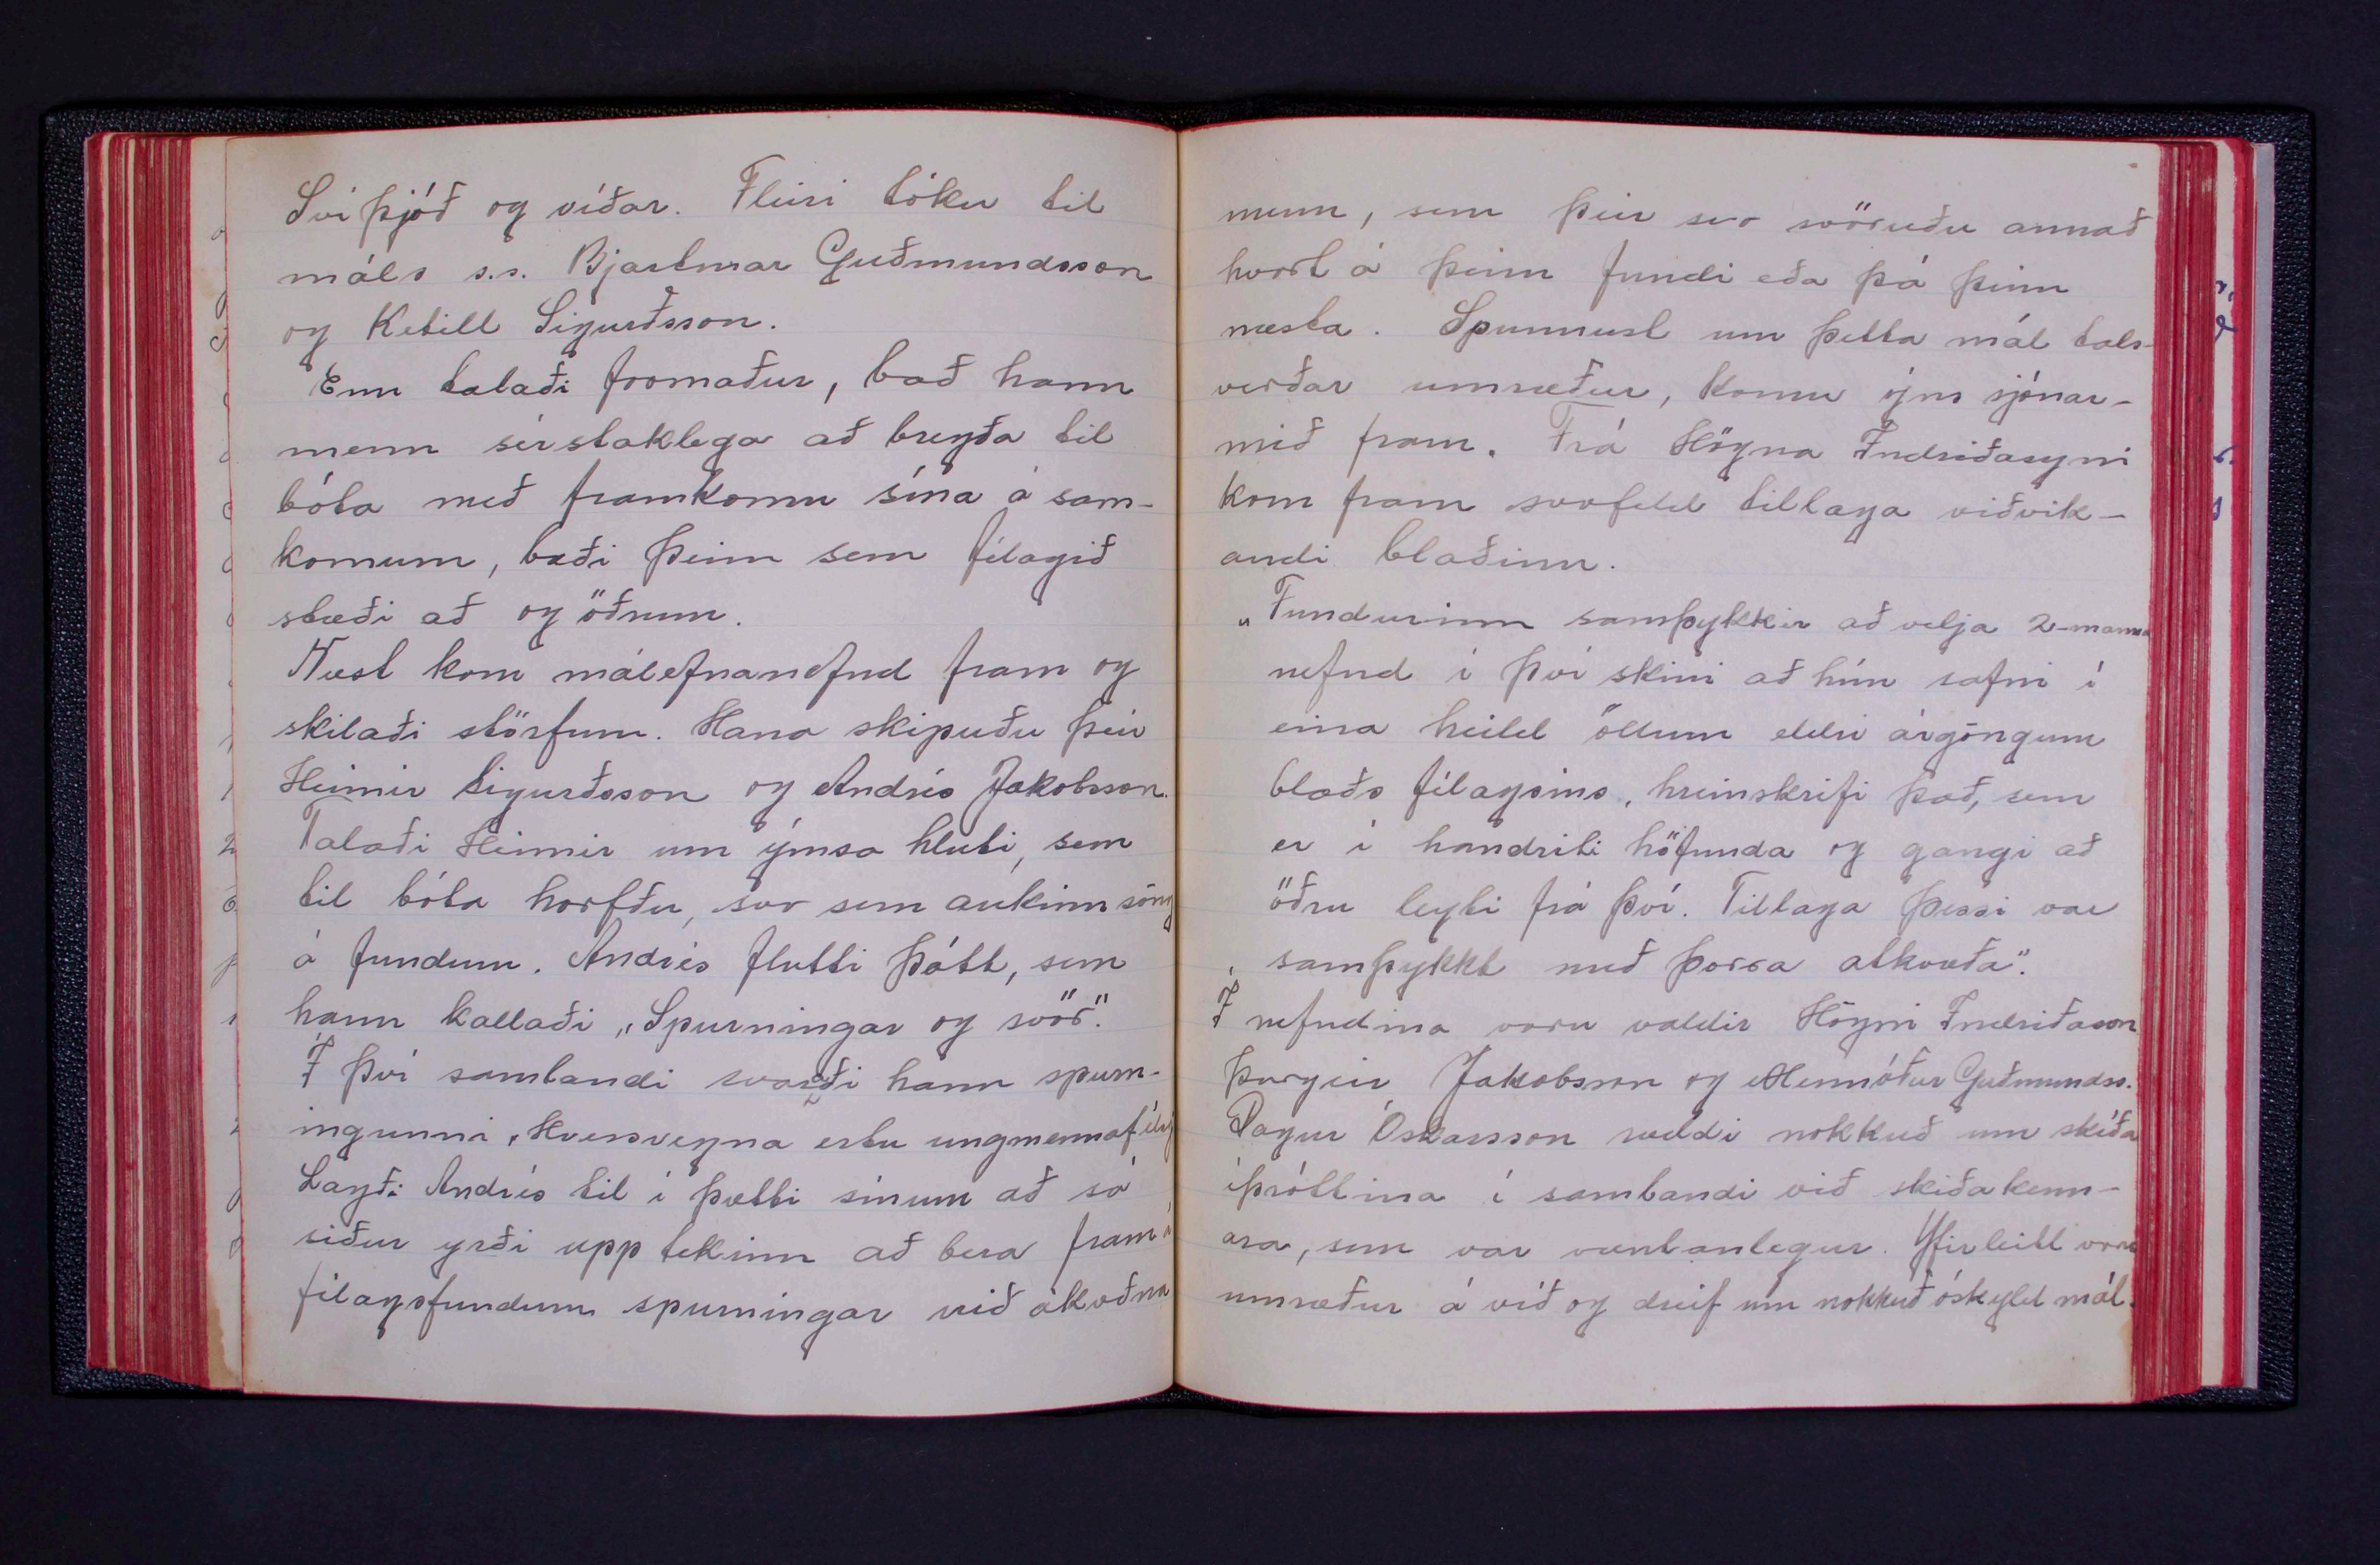 Svíþjóð og víðar. Fleiri tóku til
máls s.s. Bjartmar Guðmundsson
og Ketill Sigurðsson.
Enn talaði formaður, bað hann
menn sérstaklega að breyta til
bóta með framkomu sína á sam-
komum, bæði þeim sem félagið
stæði að og öðrum.
Næst kom málefnanefnd fram og
skilaði störfum. Hana skipuðu þeir
Heimir Sigurðsson og Andrés Jakobsson.
Talaði Heimir um ýmsa hluti, sem
til bóta horfðu, svo sem aukinn söng
á fundum. Andrés flutti þátt, sem
hann kallaði „Spurningar og svör".
Í því sambandi svaraði hann spurn-
ingunni, Hversvegna ertu ungmennafél
Lagði Andrés til í þætti sínum að sá
siður yrði upp tekinn að bera fram á
félagsfundum spurningar við ákveðna
menn, sem þeir svo svöruðu annað
hvort á þeim fundi eða þá þeim
næsta. Spunnust um þetta mál tals-
verðar umræður, komu ýms sjónar-
mið fram. Frá Högna Indriðasyni
kom fram svofeld tillaga viðvík-
andi blaðinu.
„Fundurinn samþykkir að velja 2-manna
nefnd í því skini að hún safni í
eina heild öllum eldri árgöngum
blaðs félagsins, hreinskrifi það, sem
er í handriti höfunda og gangi að
öðru leyti frá því. Tillaga þessi var
samþykkt með þorra atkvæða".
Í nefndina voru valdir Högni Indriðason
Þorgeir Jakobsson og Hermóður Guðmundss.
Dagur Óskarsson ræddi nokkuð um skíða
íþróttina í sambandi við skíðakenn-
ara, sem var væntanlegur. Yfirleitt voru
umræður á víð og dreif um nokkuð óskyld mál.